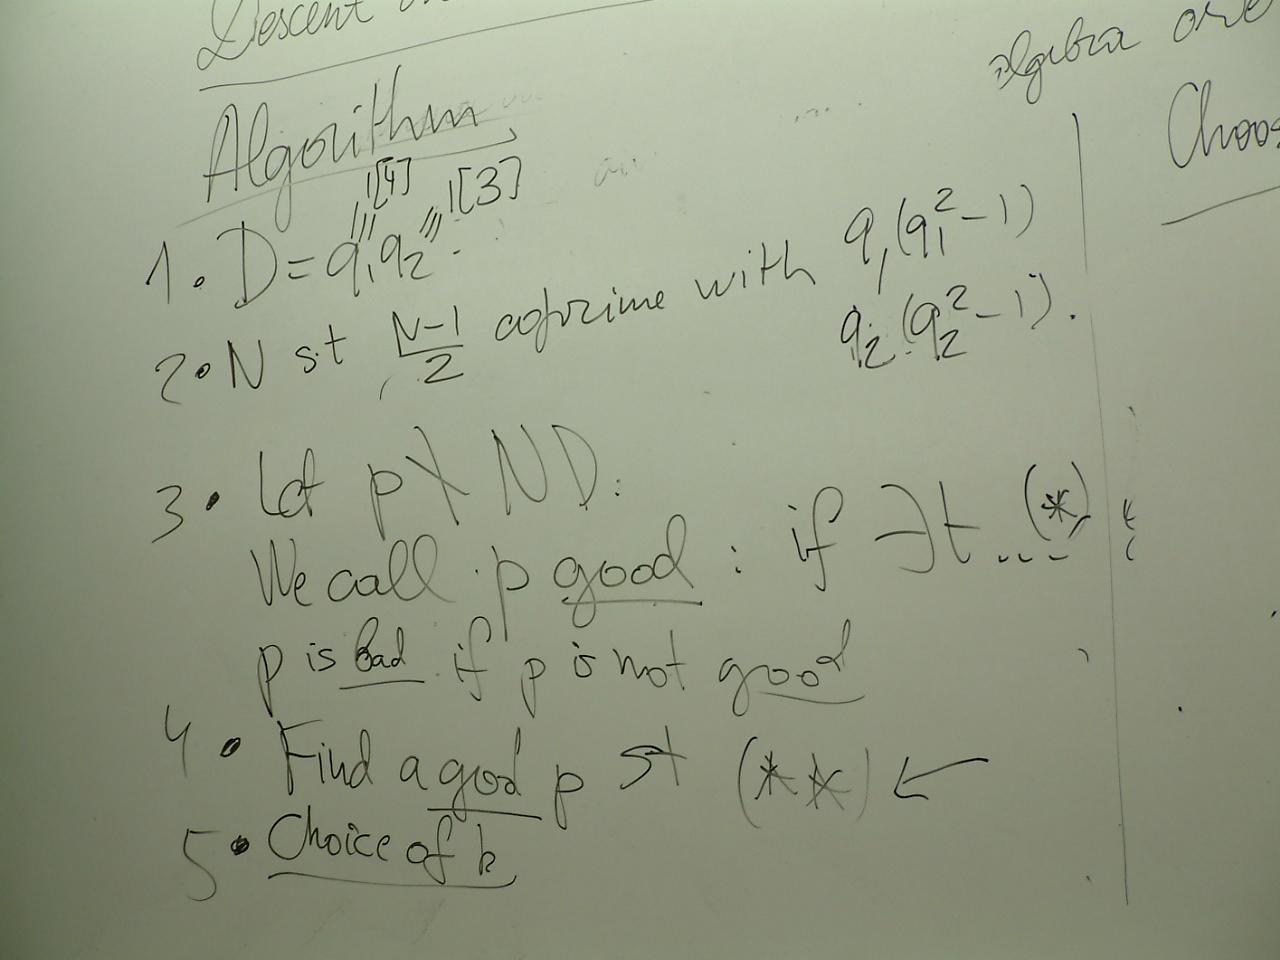 Descent
algebra over
Choos
Algorithm
1[4] 1[3]
1. D = q₁q₂
2. N st (N-1)/2 coprime with q₁(q₁²-1)
q₂(q₂²-1).
3. Let p ∤ ND.
We call p good : if ∃t ... (*)
p is bad if p is not good
4. Find a good p st (**) ←
5. Choice of k